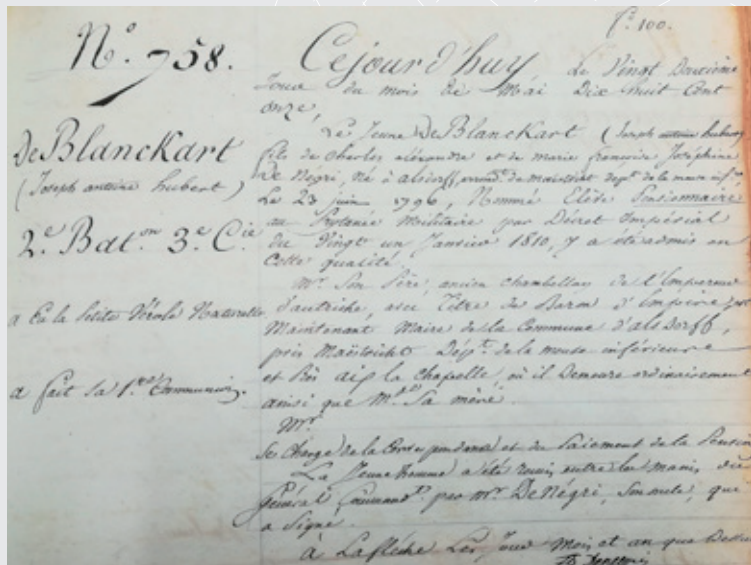 fo. 100.
No. 758.
Cejourd'huy Le Vingt Deuxième
Jour du mois de Mai Dix huit Cent
onze,
De Blanckart
(Joseph antoine hubert)
2.e Bat.on 3.e C.ie
a Eu la Petite Vérole Naturelle
a fait sa 1.ere Communion.
Le Jeune De Blanckart (Joseph antoine hubert)
fils de Charles alexandre et de marie françoise Joséphine
De Négri, né à alsdorff, arrond.t de Maestricht dep.t de la meuse inf.re
Le 23 juin 1796, Nommé Elève Pensionnaire
au Prytanée Militaire par Décret Impérial
du Vingt un Janvier 1810, y a été admis en
Cette qualité.
Mr. Son Père, ancien Chambellan de l'Empereur
d'autriche, avec Titre de Baron d'Empire,
Maintenant Maire de la Commune d'alsdorff,
près Maëstricht Dép.t de la meuse inférieure
et Près aix la Chapelle, où il Demeure ordinairement
ainsi que Mde Sa mère.
Mr.
Se Charge de la Correspondance et du Paiement de la Pension
Le Jeune homme a été remis entre les mains du
Général Command.t par Mr. De Négri, Son oncle, qui
a Signé.
à Laflèche Les Jour Mois et an que Dessus